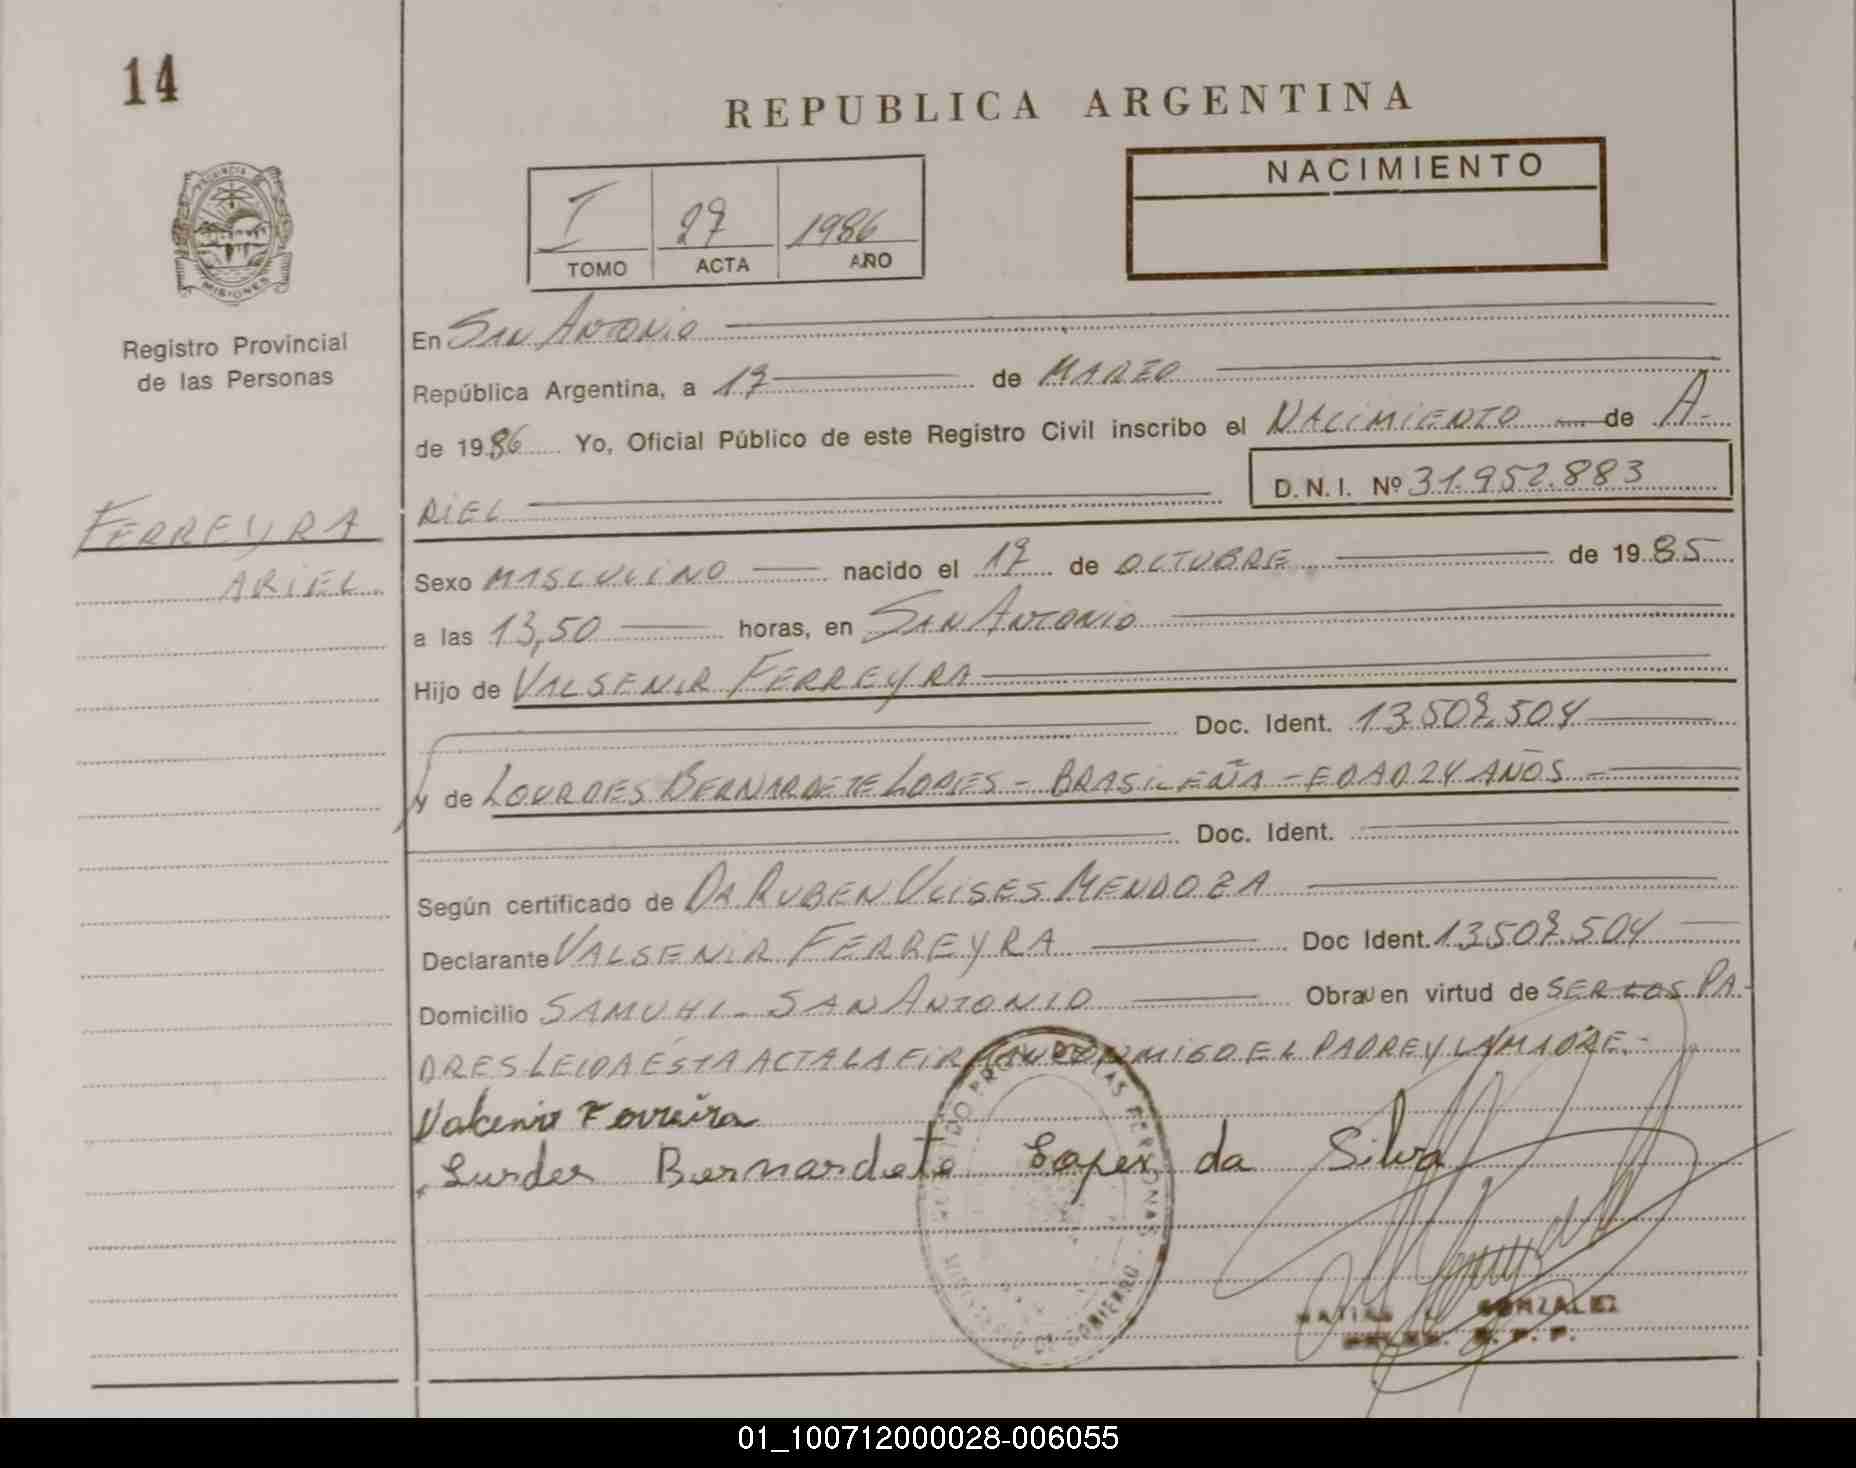 14
REPUBLICA ARGENTINA
NACIMIENTO
I 27 1986
TOMO ACTA AÑO
PROVINCIA DE
MISIONES
Registro Provincial
de las Personas
En SAN ANTONIO
República Argentina, a 17 de MARZO
de 1986 Yo, Oficial Público de este Registro Civil inscribo el NACIMIENTO de A-
RIEL D.N.I. Nº 31.952.883
FERREYRA
ARIEL.
Sexo MASCULINO nacido el 17 de OCTUBRE de 1985
a las 13,50 horas, en SAN ANTONIO
Hijo de VALSENIR FERREYRA
Doc. Ident. 13.507.504
y de LOURDES BERNARDETE LOPES - BRASILEÑA - EDAD 24 AÑOS -
Doc. Ident.
Según certificado de DR RUBEN ULISES MENDOZA
Declarante VALSENIR FERREYRA Doc Ident. 13.507.504
Domicilio SAMUHI - SAN ANTONIO Obran en virtud de SER LOS PA-
DRES LEIDA ÉSTA ACTA LA FIRMAN CONMIGO EL PADRE Y LA MADRE.-
Valcenir Ferreira
Lurdes Bernardete Lopes da Silva
REGISTRO PROV. DE LAS PERSONAS
MINISTERIO DE GOBIERNO
GONZALEZ
R. P. P.
01_100712000028-006055